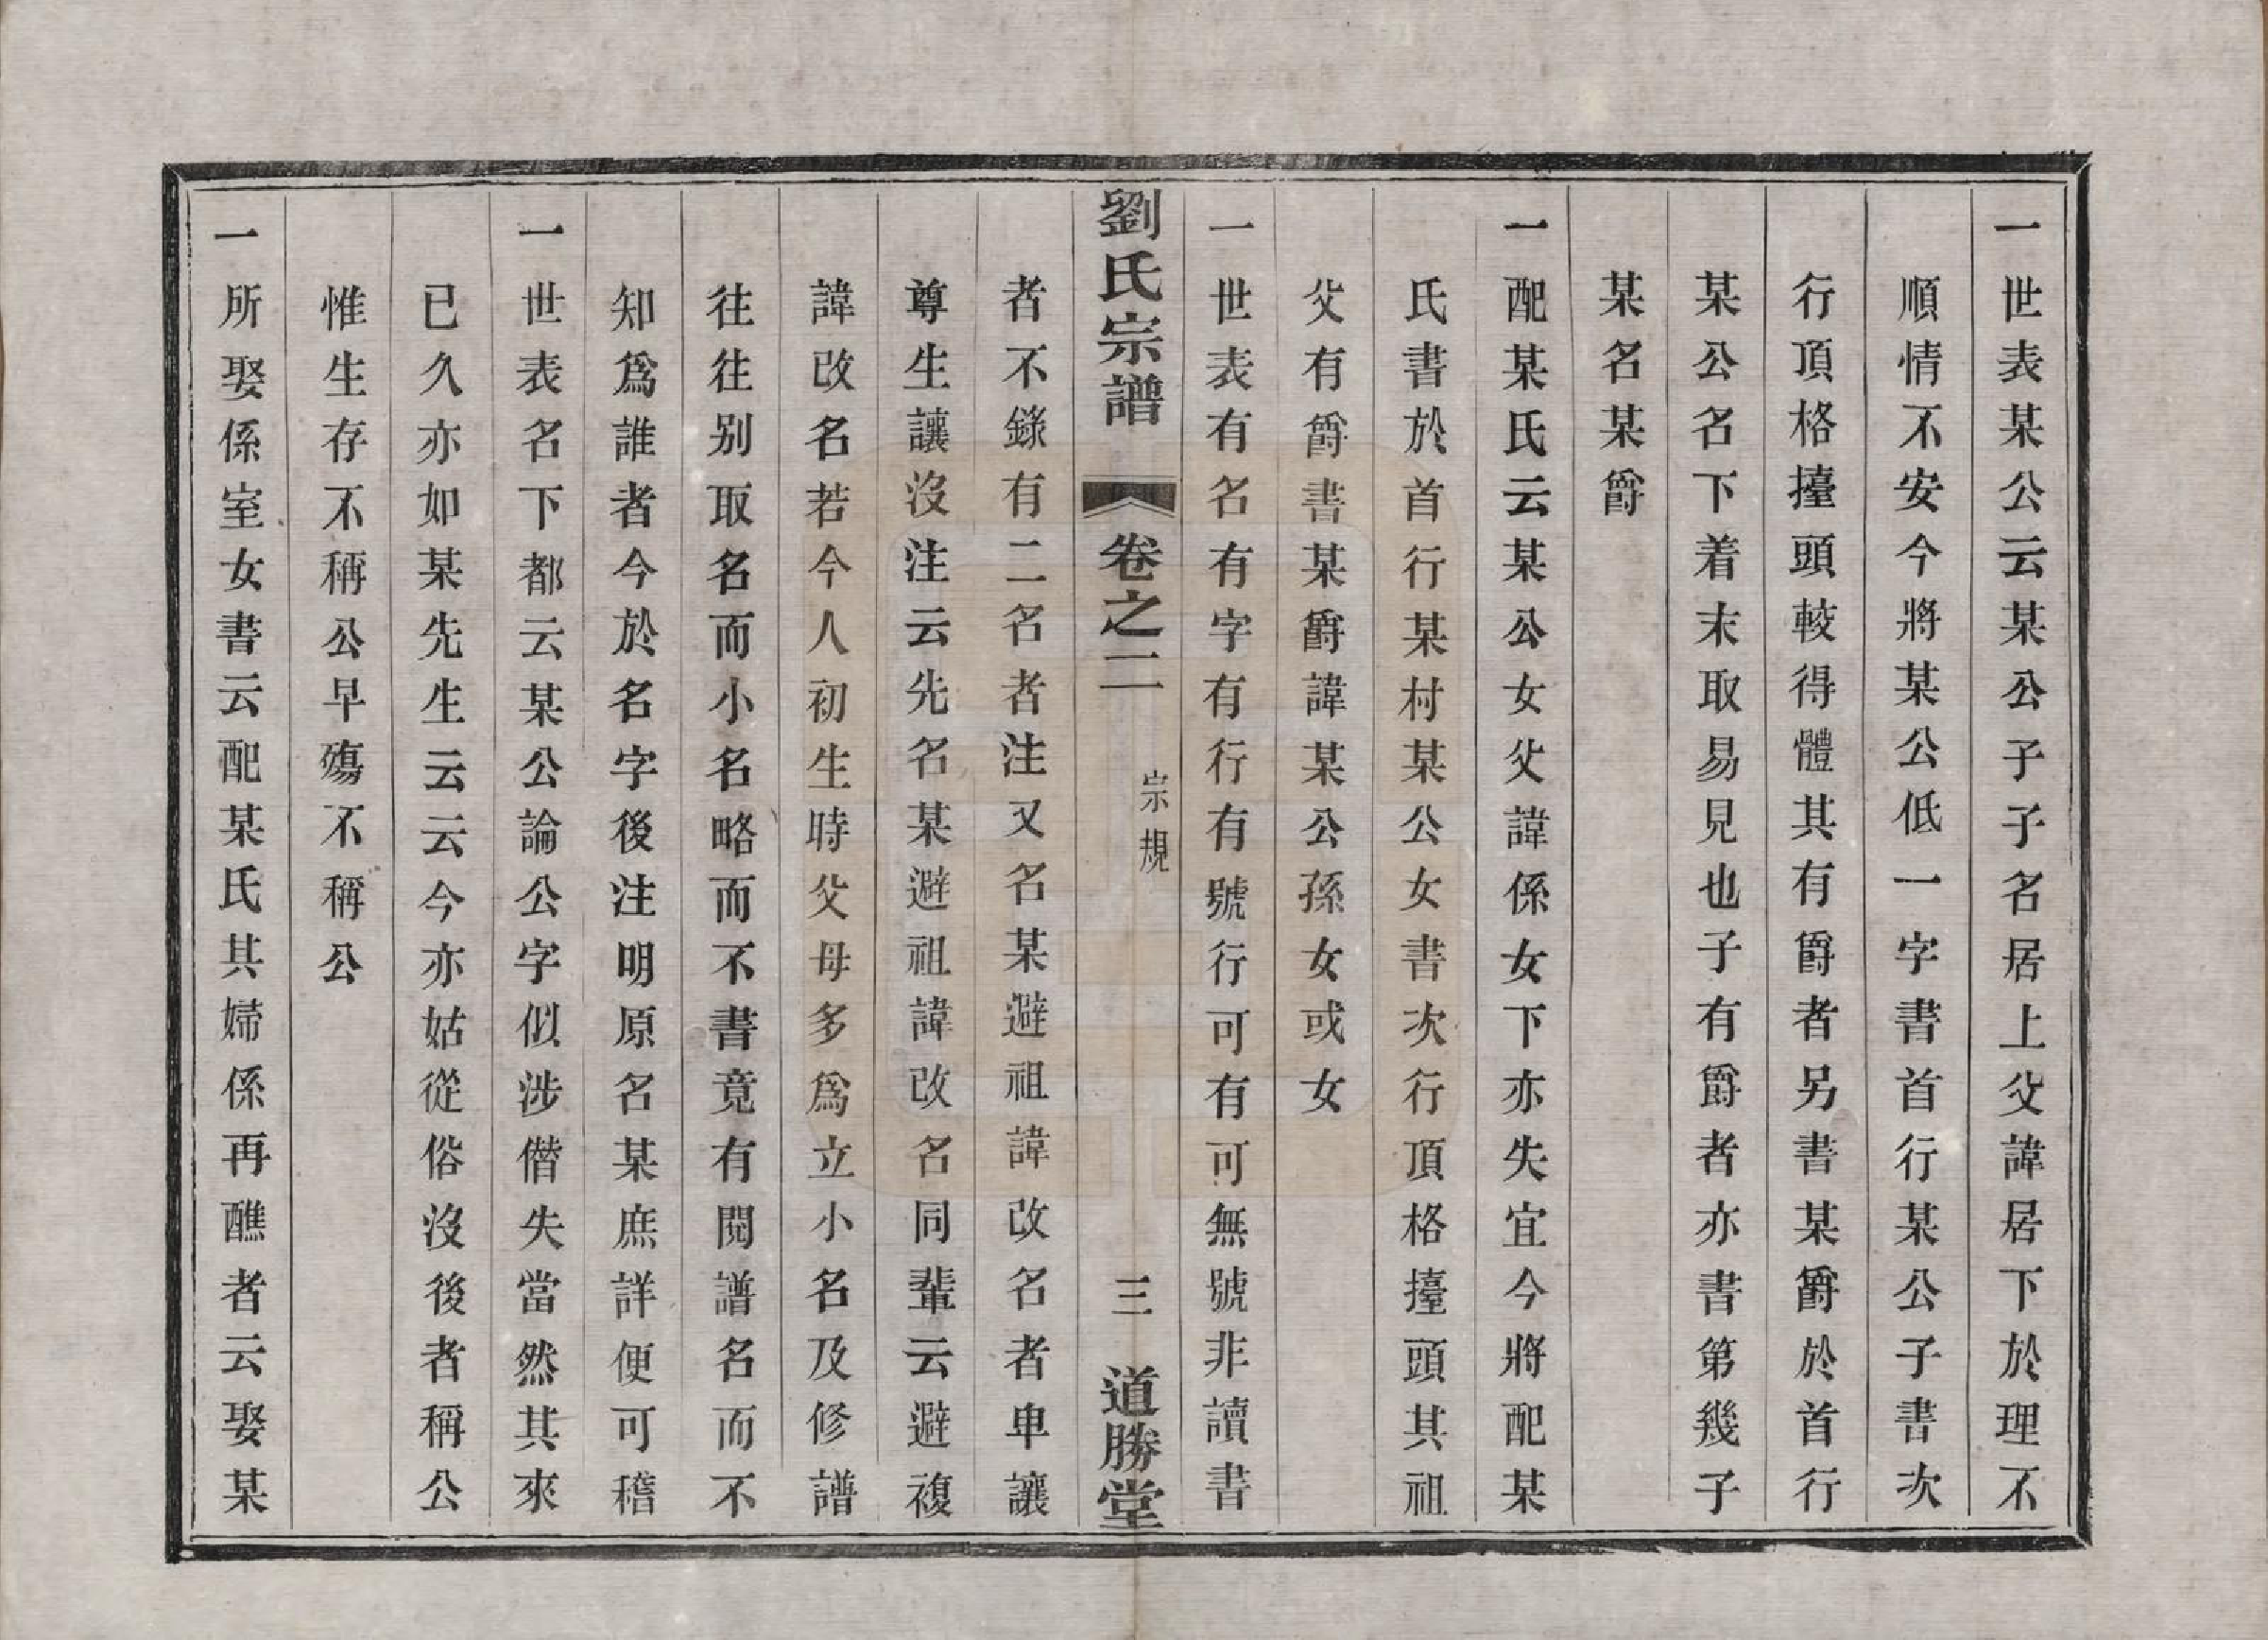 一世表某公云某公子子名居上父諱居下於理不
順情不安今將某公低一字書首行某公子書次
行頂格擡頭較得體其有爵者另書某爵於首行
某公名下着末取易見也子有爵者亦書第幾子
某名某爵
一配某氏云某公女父諱係女下亦失宜今將配某
氏書於首行某村某公女書次行頂格擡頭其祖
父有爵書某爵諱某公孫女或女
一世表有名有字有行有號行可有可無號非讀書
劉氏宗譜 卷之二 宗規 三 道勝堂
者不錄有二名者注又名某避祖諱改名者卑讓
尊生讓沒注云先名某避祖諱改名同輩云避複
諱改名若今人初生時父母多爲立小名及修譜
往往別取名而小名略而不書竟有閱譜名而不
知爲誰者今於名字後注明原名某庶詳便可稽
一世表名下都云某公論公字似涉僭失當然其來
已久亦如某先生云云今亦姑從俗沒後者稱公
惟生存不稱公早殤不稱公
一所娶係室女書云配某氏其婦係再醮者云娶某